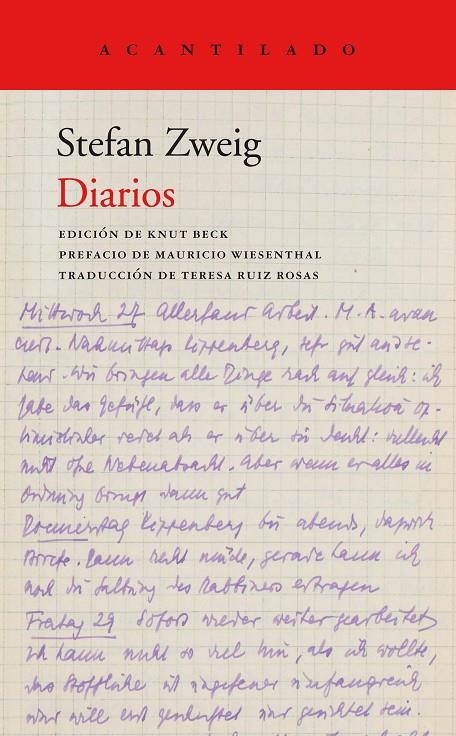 ACANTILADO
Stefan Zweig
Diarios
EDICIÓN DE KNUT BECK
PREFACIO DE MAURICIO WIESENTHAL
TRADUCCIÓN DE TERESA RUIZ ROSAS
Mittwoch 27 Allerhand Arbeit. M. A. avan
ciert. Nachmittags Kippenberg, sehr gut
Wir bringen alle Dinge rasch auf gleich: ich
habe das Gefühl, dass er über die Situation op-
timistischer redet als er über sie denkt: vielleicht
nicht ohne Nebenabsicht. Aber wenn er alles in
Ordnung bringt dann gut
Donnerstag Kippenberg bis abends, dazwisch
Briefe. Dann recht müde, gerade kann ich
noch die des Rabbiners ertragen
Freitag 29 Sofort wieder weiter gearbeitet
Ich kann nicht so viel hin, als ich wollte,
das Stoffliche ist ungeheuer umfangreich
und will erst gesichtet sein.